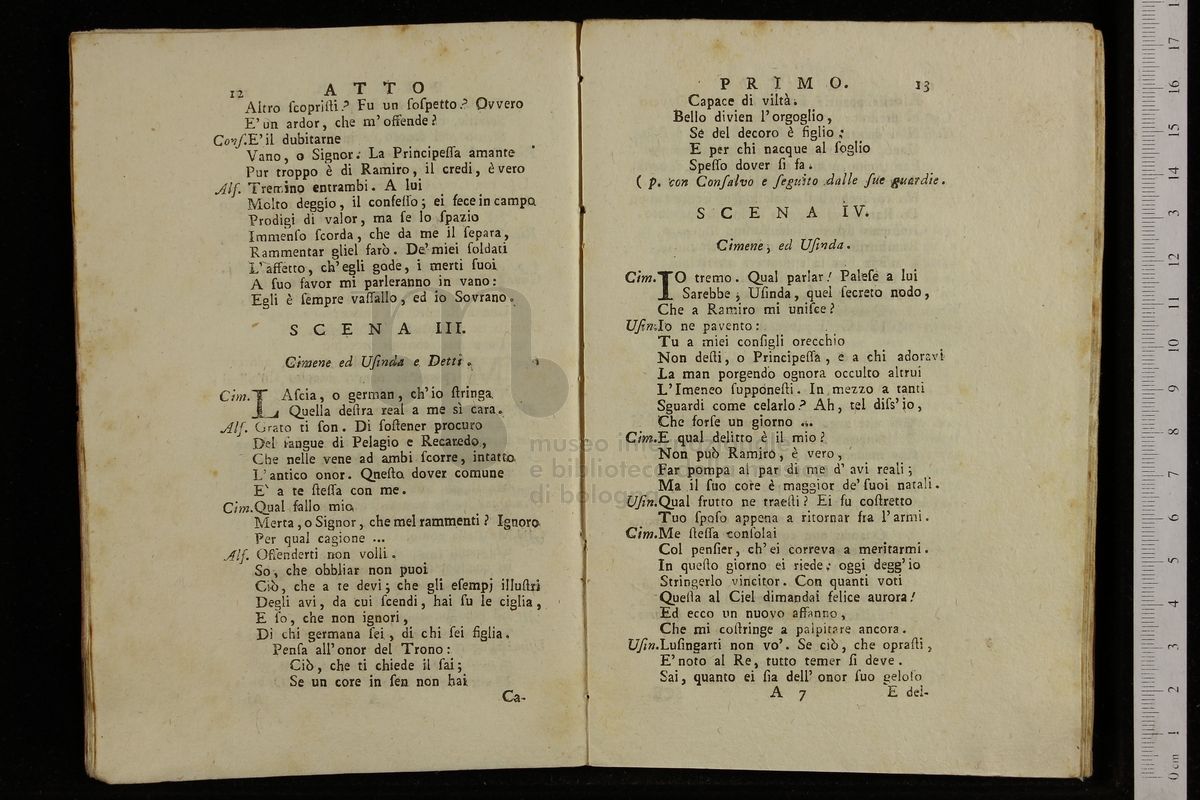 12 ATTO
Altro ſcopriſti? Fu un ſoſpetto? Ovvero
E' un ardor, che m' offende?
Conſ. E' il dubitarne
Vano, o Signor: La Principeſſa amante
Pur troppo è di Ramiro, il credi, è vero
Alſ. Tremino entrambi. A lui
Molto deggio, il confeſſo; ei fece in campo
Prodigi di valor, ma ſe lo ſpazio
Immenſo ſcorda, che da me il ſepara,
Rammentar gliel farò. De' miei ſoldati
L' affetto, ch' egli gode, i merti ſuoi
A ſuo favor mi parleranno in vano:
Egli è ſempre vaſſallo, ed io Sovrano.
SCENA III.
Cimene ed Uſinda e Detti.
Cim. LAſcia, o german, ch' io ſtringa
Quella deſtra real a me sì cara.
Alſ. Grato ti ſon. Di ſoſtener procuro
Del ſangue di Pelagio e Recaredo,
Che nelle vene ad ambi ſcorre, intatto
L' antico onor. Qneſto dover comune
E` a te ſteſſa con me.
Cim. Qual fallo mio
Merta, o Signor, che mel rammenti? Ignoro
Per qual cagione ...
Alſ. Offenderti non volli.
So, che obbliar non puoi
Ciò, che a te devi; che gli eſempj illuſtri
Degli avi, da cui ſcendi, hai ſu le ciglia,
E ſo, che non ignori,
Di chi germana ſei, di chi ſei figlia.
Penſa all' onor del Trono:
Ciò, che ti chiede il ſai;
Se un core in ſen non hai
Ca-
PRIMO. 13
Capace di viltà.
Bello divien l' orgoglio,
Se del decoro è figlio;
E per chi nacque al ſoglio
Speſſo dover ſi fa.
( p. con Conſalvo e ſeguìto dalle ſue guardie.
SCENA IV.
Cimene, ed Uſinda.
Cim. IO tremo. Qual parlar! Paleſe a lui
Sarebbe, Uſinda, quel ſecreto nodo,
Che a Ramiro mi uniſce?
Uſin. Io ne pavento:
Tu a miei conſigli orecchio
Non deſti, o Principeſſa, e a chi adoravi
La man porgendo ognora occulto altrui
L' Imeneo ſupponeſti. In mezzo a tanti
Sguardi come celarlo? Ah, tel diſs' io,
Che forſe un giorno ...
Cim. E qual delitto è il mio?
Non può Ramiro, è vero,
Far pompa al par di me d' avi reali;
Ma il ſuo core è maggior de' ſuoi natali.
Uſin. Qual frutto ne traeſti? Ei fu coſtretto
Tuo ſpoſo appena a ritornar fra l' armi.
Cim. Me ſteſſa conſolai
Col penſier, ch' ei correva a meritarmi.
In queſto giorno ei riede: oggi degg' io
Stringerlo vincitor. Con quanti voti
Queſta al Ciel dimandai felice aurora!
Ed ecco un nuovo affanno,
Che mi coſtringe a palpitare ancora.
Uſin. Luſingarti non vo'. Se ciò, che opraſti,
E' noto al Re, tutto temer ſi deve.
Sai, quanto ei ſia dell' onor ſuo geloſo
A 7 E del-
museo
e biblioteca
di bologna